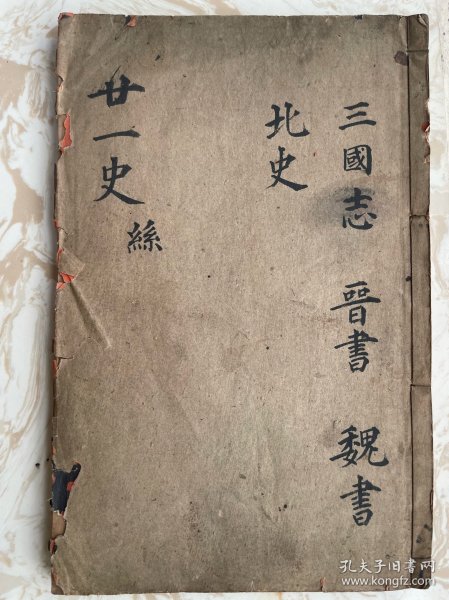 三國志 晉書 魏書
北史
廿一史
絲
孔夫子旧书网
www.kongfz.com